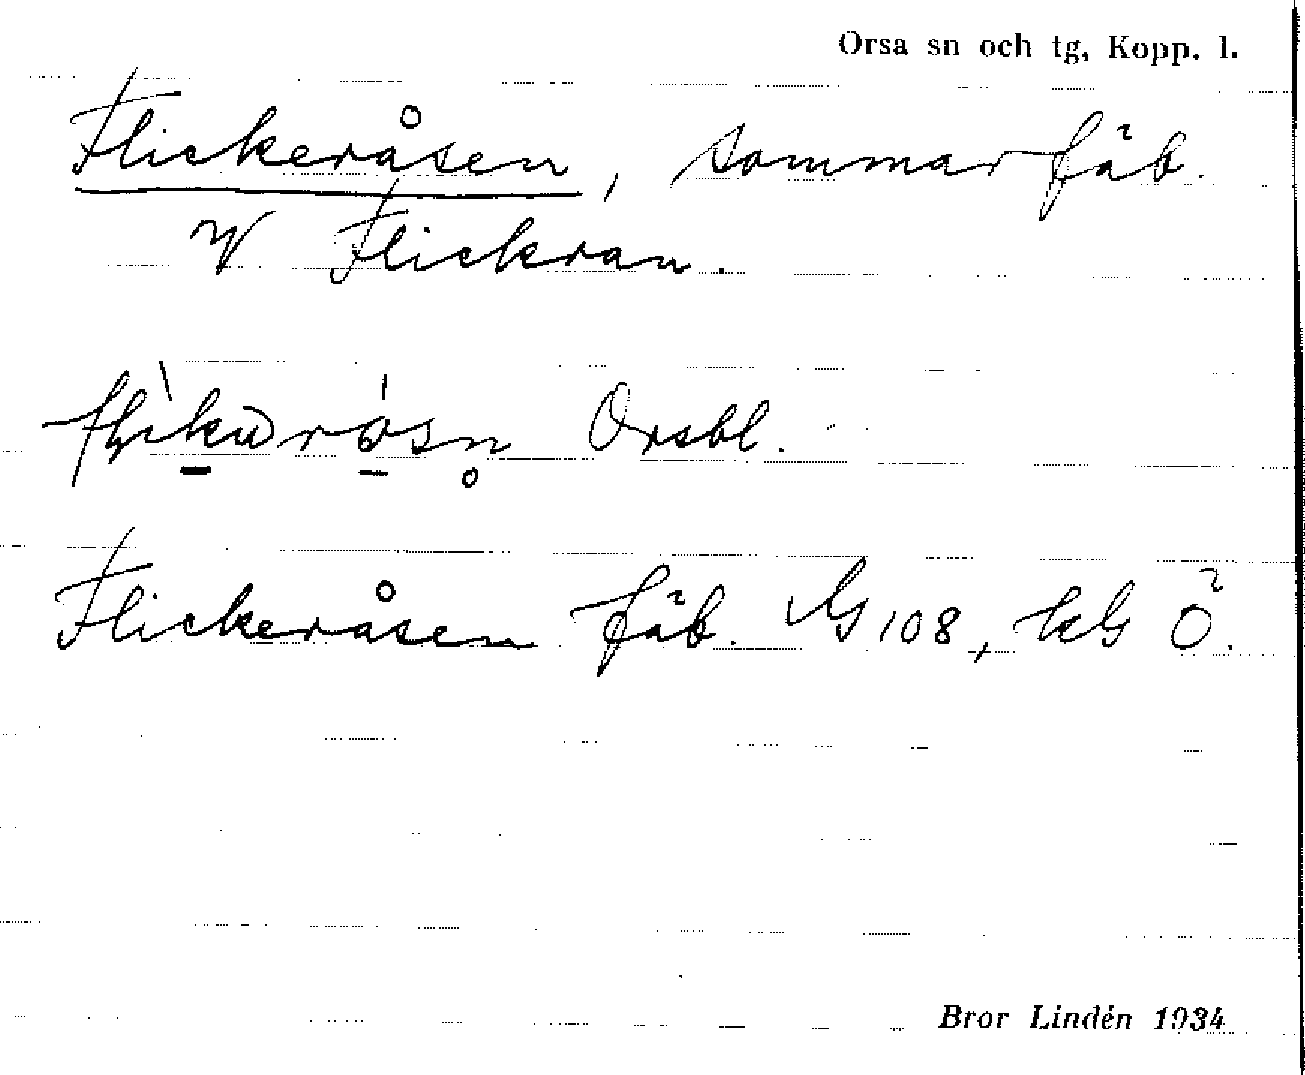 Orsa sn och tg, Kopp. l.
Flickeråsen, sommarfäb.
V Flickran.
Orsbl.
Flickeråsen fäb. G 108, kG Ö.
Bror Lindén 1934